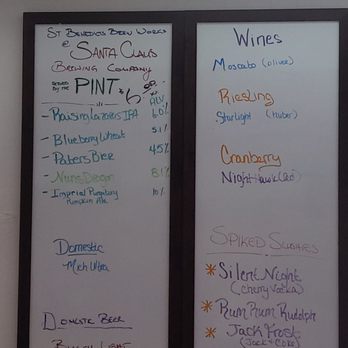 St Benedict's Brew Works
@
Santa Claus
Brewing Company
Served by the PINT $6.00
ABV
- Raising Lazarus IPA 6.0%
- Blueberry Wheat 5.1%
- Paters Bier 4.5%
- Nuns 8.1%
- Imperial Purgatory 10%
Pumpkin Ale
Domestic
Mich Ultra
Domestic Beer
Light
Wines
Moscato (oliver)
Riesling
Starlight (Huber)
Cranberry
Night Hawk (Red)
Spiked Slushies
* Silent Night
(cherry vodka)
* Rum Rum Rudolph
* Jack Frost
(Jack & Coke)